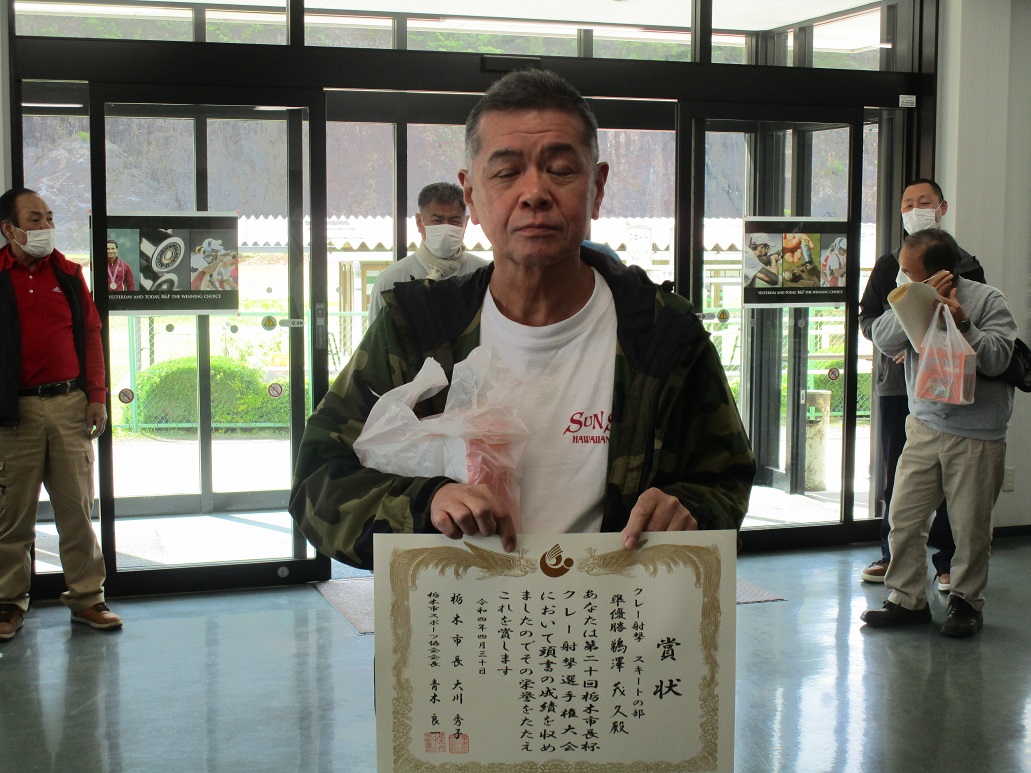 YESTERDAY AND TODAY, B&P THE WINNING CHOICE
YESTERDAY AND TODAY, B&P THE WINNING CHOICE
SUN S
HAWAIIAN
賞状
クレー射撃 スキートの部
準優勝 鵜澤茂久殿
あなたは第二十回栃木市長杯
クレー射撃選手権大会
において頭書の成績を収め
ましたのでその栄誉をたたえ
これを賞します
令和四年四月三十日
栃木市長 大川秀子
栃木市スポーツ協会会長 青木良一